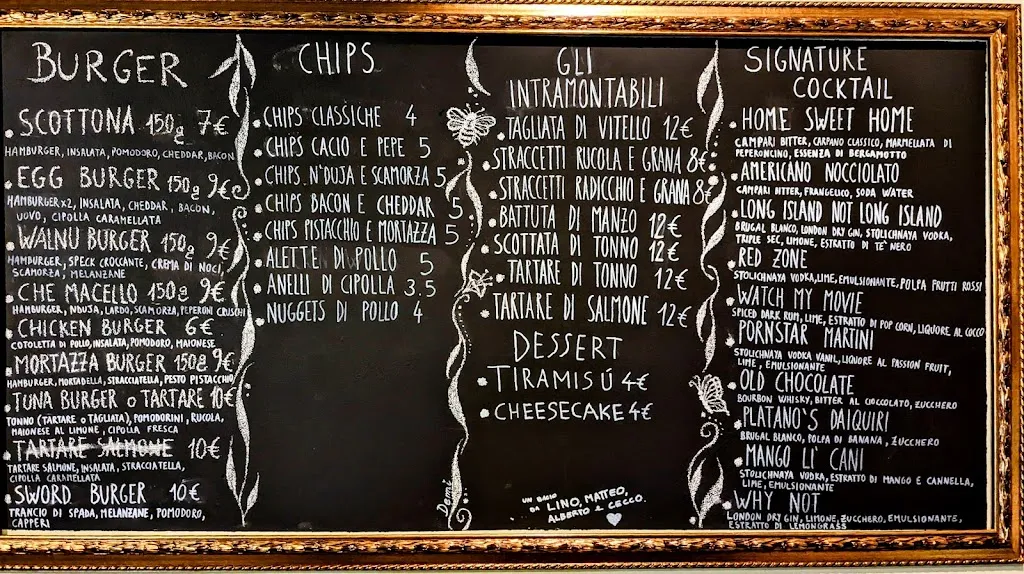 BURGER
SCOTTONA 150g 7€
HAMBURGER, INSALATA, POMODORO, CHEDDAR, BACON
EGG BURGER 150g 9€
HAMBURGER x2, INSALATA, CHEDDAR, BACON,
UOVO, CIPOLLA CARAMELLATA
WALNU BURGER 150g 9€
HAMBURGER, SPECK CROCCANTE, CREMA DI NOCI,
SCAMORZA, MELANZANE
CHE MACELLO 150g 9€
HAMBURGER, NDUJA, LARDO, SCAMORZA, PEPERONI CRUSCHI
CHICKEN BURGER 6€
COTOLETTA DI POLLO, INSALATA, POMODORO, MAIONESE
MORTAZZA BURGER 150g 9€
HAMBURGER, MORTADELLA, STRACCIATELLA, PESTO PISTACCHIO
TUNA BURGER O TARTARE 10€
TONNO (TARTARE O TAGLIATA), POMODORINI, RUCOLA,
MAIONESE AL LIMONE, CIPOLLA FRESCA
TARTARE SALMONE 10€
TARTARE SALMONE, INSALATA, STRACCIATELLA,
CIPOLLA CARAMELLATA
SWORD BURGER 10€
TRANCIO DI SPADA, MELANZANE, POMODORO,
CAPPERI
CHIPS
CHIPS CLASSICHE 4
CHIPS CACIO E PEPE 5
CHIPS N'DUJA E SCAMORZA 5
CHIPS BACON E CHEDDAR 5
CHIPS PISTACCHIO E MORTAZZA 5
ALETTE DI POLLO 5
ANELLI DI CIPOLLA 3,5
NUGGETS DI POLLO 4
GLI
INTRAMONTABILI
TAGLIATA DI VITELLO 12€
STRACCETTI RUCOLA E GRANA 8€
STRACCETTI RADICCHIO E GRANA 8€
BATTUTA DI MANZO 12€
SCOTTATA DI TONNO 12€
TARTARE DI TONNO 12€
TARTARE DI SALMONE 12€
DESSERT
TIRAMISÚ 4€
CHEESECAKE 4€
UN BACIO
DA LINO, MATTEO,
ALBERTO E CECCO.
Demi
SIGNATURE
COCKTAIL
HOME SWEET HOME
CAMPARI BITTER, CARPANO CLASSICO, MARMELLATA DI
PEPERONCINO, ESSENZA DI BERGAMOTTO
AMERICANO NOCCIOLATO
CAMPARI BITTER, FRANGELICO, SODA WATER
LONG ISLAND NOT LONG ISLAND
BRUGAL BLANCO, LONDON DRY GIN, STOLICHNAYA VODKA,
TRIPLE SEC, LIMONE, ESTRATTO DI TE' NERO
RED ZONE
STOLICHNAYA VODKA, LIME, EMULSIONANTE, POLPA FRUTTI ROSSI
WATCH MY MOVIE
SPICED DARK RUM, LIME, ESTRATTO DI POP CORN, LIQUORE AL COCCO
PORNSTAR MARTINI
STOLICHNAYA VODKA VANIL, LIQUORE AL PASSION FRUIT,
LIME, EMULSIONANTE
OLD CHOCOLATE
BOURBON WHISKY, BITTER AL CIOCCOLATO, ZUCCHERO
PLATANO'S DAIQUIRI
BRUGAL BLANCO, POLPA DI BANANA, ZUCCHERO
MANGO LI' CANI
STOLICHNAYA VODKA, ESTRATTO DI MANGO E CANNELLA,
LIME, EMULSIONANTE
WHY NOT
LONDON DRY GIN, LIMONE, ZUCCHERO, EMULSIONANTE,
ESTRATTO DI LEMONGRASS